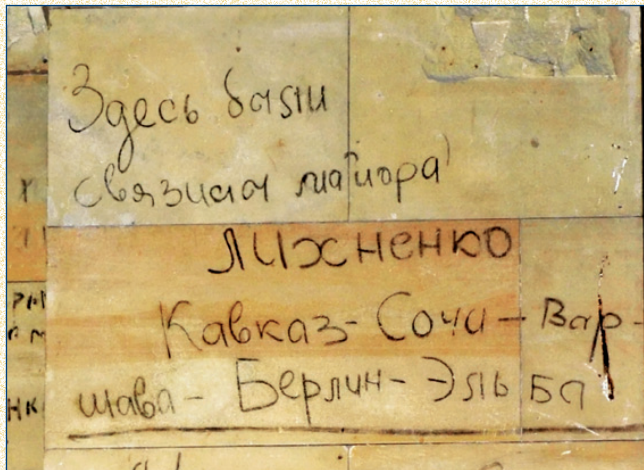 Здесь были
связисты маиора
ЛИХНЕНКО
Кавказ-Сочи-Вар-
шава-Берлин-Эльба